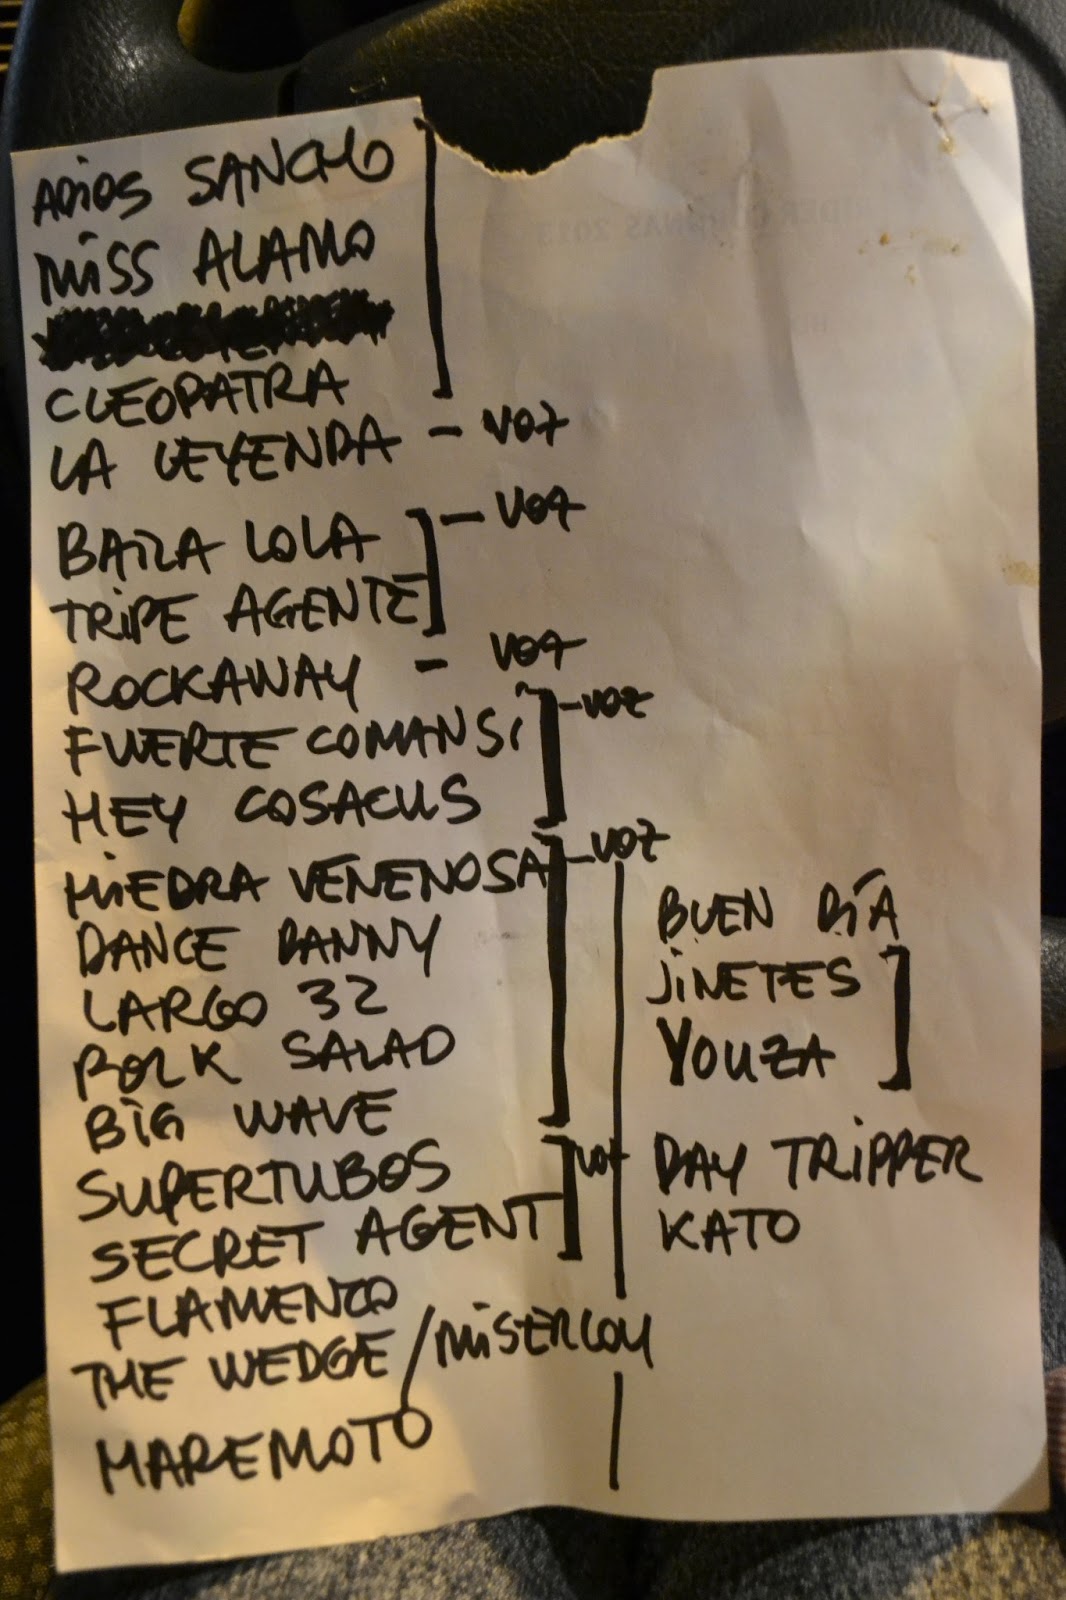 ADIOS SANCHO
MISS ALAMO
CLEOPATRA
LA LEYENDA - VOZ
BAILA LOLA - VOZ
TRIPE AGENTE
ROCKAWAY - VOZ
FUERTE COMANSI - VOZ
HEY COSACUS
HIEDRA VENENOSA - VOZ
DANCE DANNY
LARGO 32
POLK SALAD
BIG WAVE
SUPERTUBOS VOZ
SECRET AGENT
FLAMENCO
THE WEDGE / MISERLOU
MAREMOTO
BUEN DÍA
JINETES
YOUZA
DAY TRIPPER
KATO